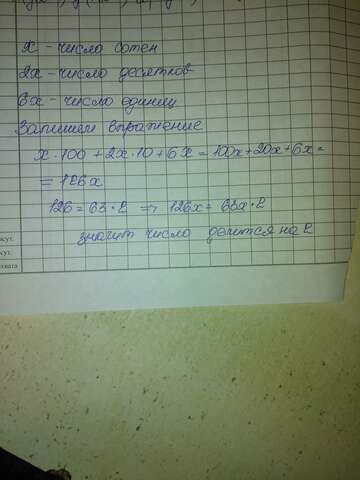 x - число сотен
2x - число десятков
6x - число единиц
Запишем выражение
x·100+2x·10+6x=100x+20x+6x=
=126x
126=63·2 ⇒ 126x=63x·2
значит число делится на 2